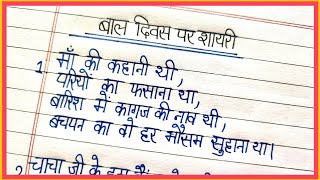 बाल दिवस पर शायरी
1. माँ की कहानी थी,
परियों का फसाना था,
बारिश में कागज की नाव थी,
बचपन का वो हर मौसम सुहाना था।
चाचा जी के हम